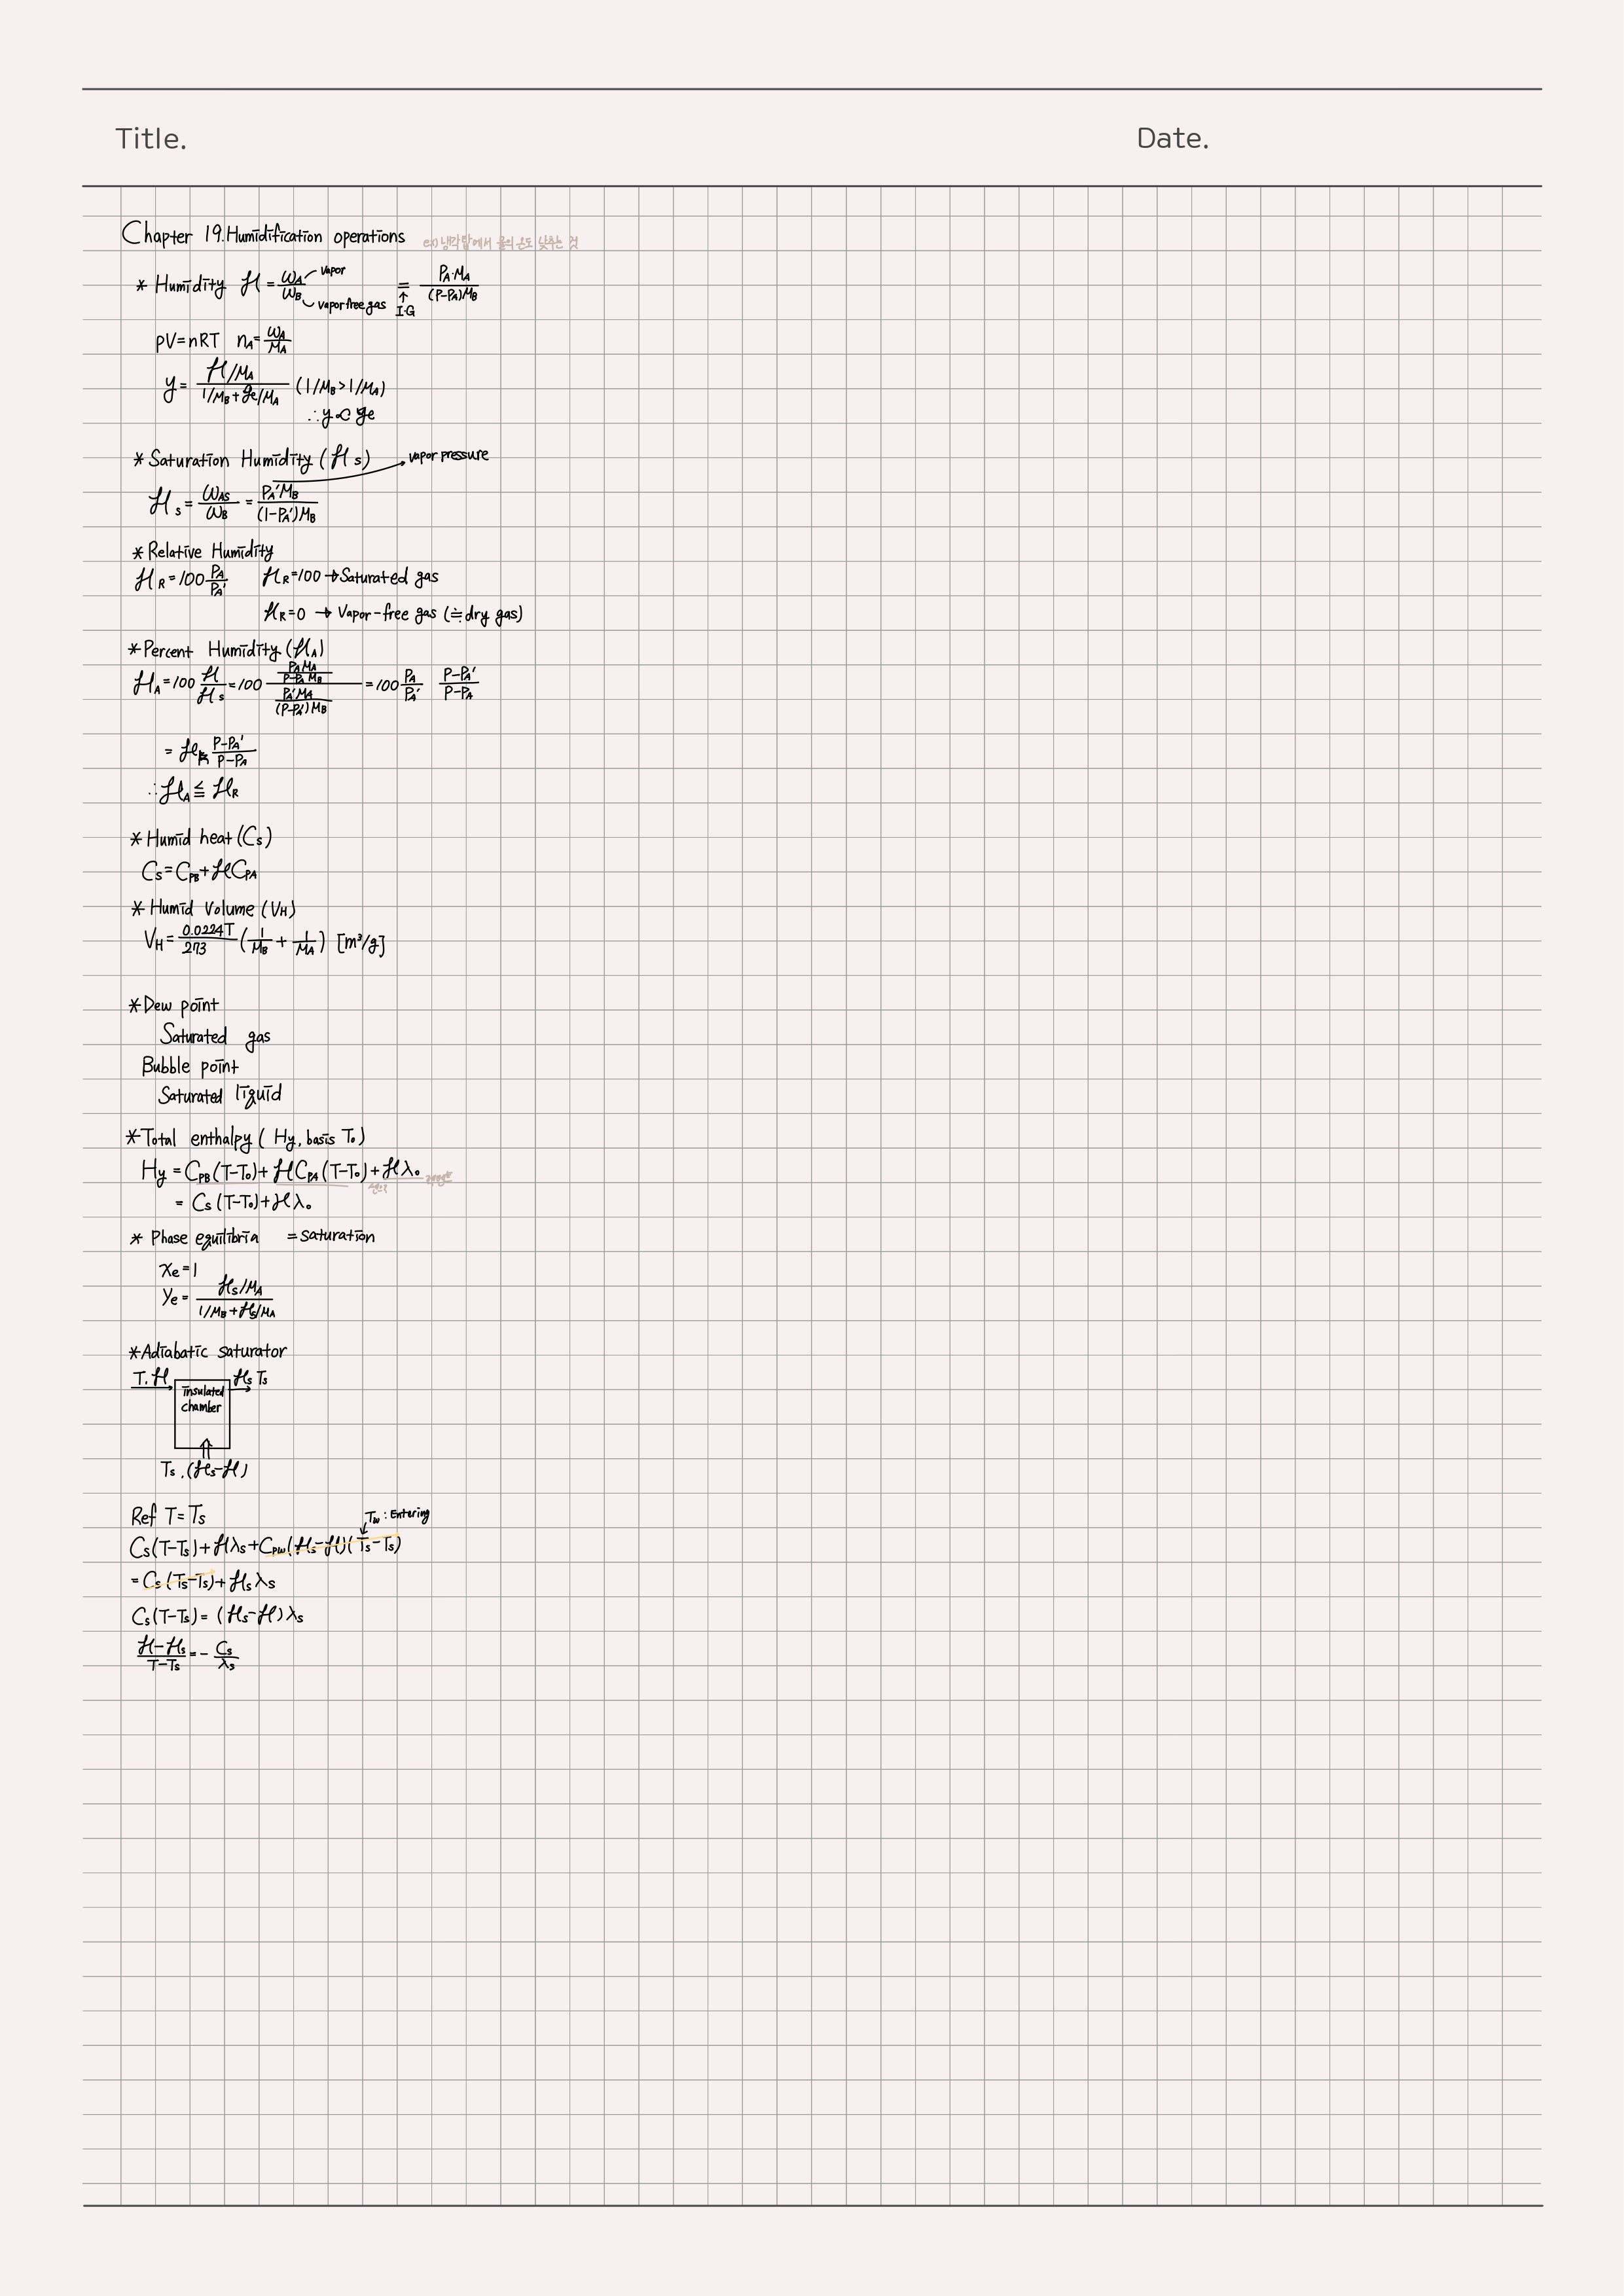 Title. Date.
Chapter 19. Humidification operations ex) 냉각탑에서 물의 온도 낮추는 것
* Humidity ℋ = ω_A/ω_B = P_A·M_A/(P-P_A)M_B
vapor
vapor free gas
↑
I·G
pV=nRT n_A=ω_A/M_A
y = (ℋ/M_A)/(1/M_B+ℋ/M_A) (1/M_B>1/M_A)
∴ y ∝ ℋ
* Saturation Humidity (ℋs) → vapor pressure
ℋs = ω_AS/ω_B = P_A'M_B/(1-P_A')M_B
* Relative Humidity
ℋ_R=100 P_A/P_A' ℋ_R=100 → Saturated gas
ℋ_R=0 → Vapor-free gas (≒dry gas)
* Percent Humidity (ℋ_A)
ℋ_A=100 ℋ/ℋs = 100 (P_A M_A/P-P_A M_B)/(P_A'M_A/(P-P_A')M_B) = 100 P_A/P_A' P-P_A'/P-P_A
= ℋ_R P-P_A'/P-P_A
∴ ℋ_A ≦ ℋ_R
* Humid heat (Cs)
Cs=C_PB+ℋC_PA
* Humid Volume (V_H)
V_H = 0.0224T/273 (1/M_B + 1/M_A) [m³/g]
* Dew point
Saturated gas
Bubble point
Saturated liquid
* Total enthalpy (Hy, basis T₀)
Hy = C_PB(T-T₀)+ℋC_PA(T-T₀)+ℋλ₀
= Cs(T-T₀)+ℋλ₀
* Phase equilibria = saturation
xe=1
ye = (ℋs/M_A)/(1/M_B+ℋs/M_A)
* Adiabatic saturator
T.ℋ ℋs Ts
insulated
chamber
Ts.(ℋs-ℋ)
Ref T=Ts
Tw : Entering
Cs(T-Ts)+ℋλs+C_PW(ℋs-ℋ)(Ts-Ts)
= Cs(Ts-Ts)+ℋsλs
Cs(T-Ts)=(ℋs-ℋ)λs
ℋ-ℋs/T-Ts = - Cs/λs